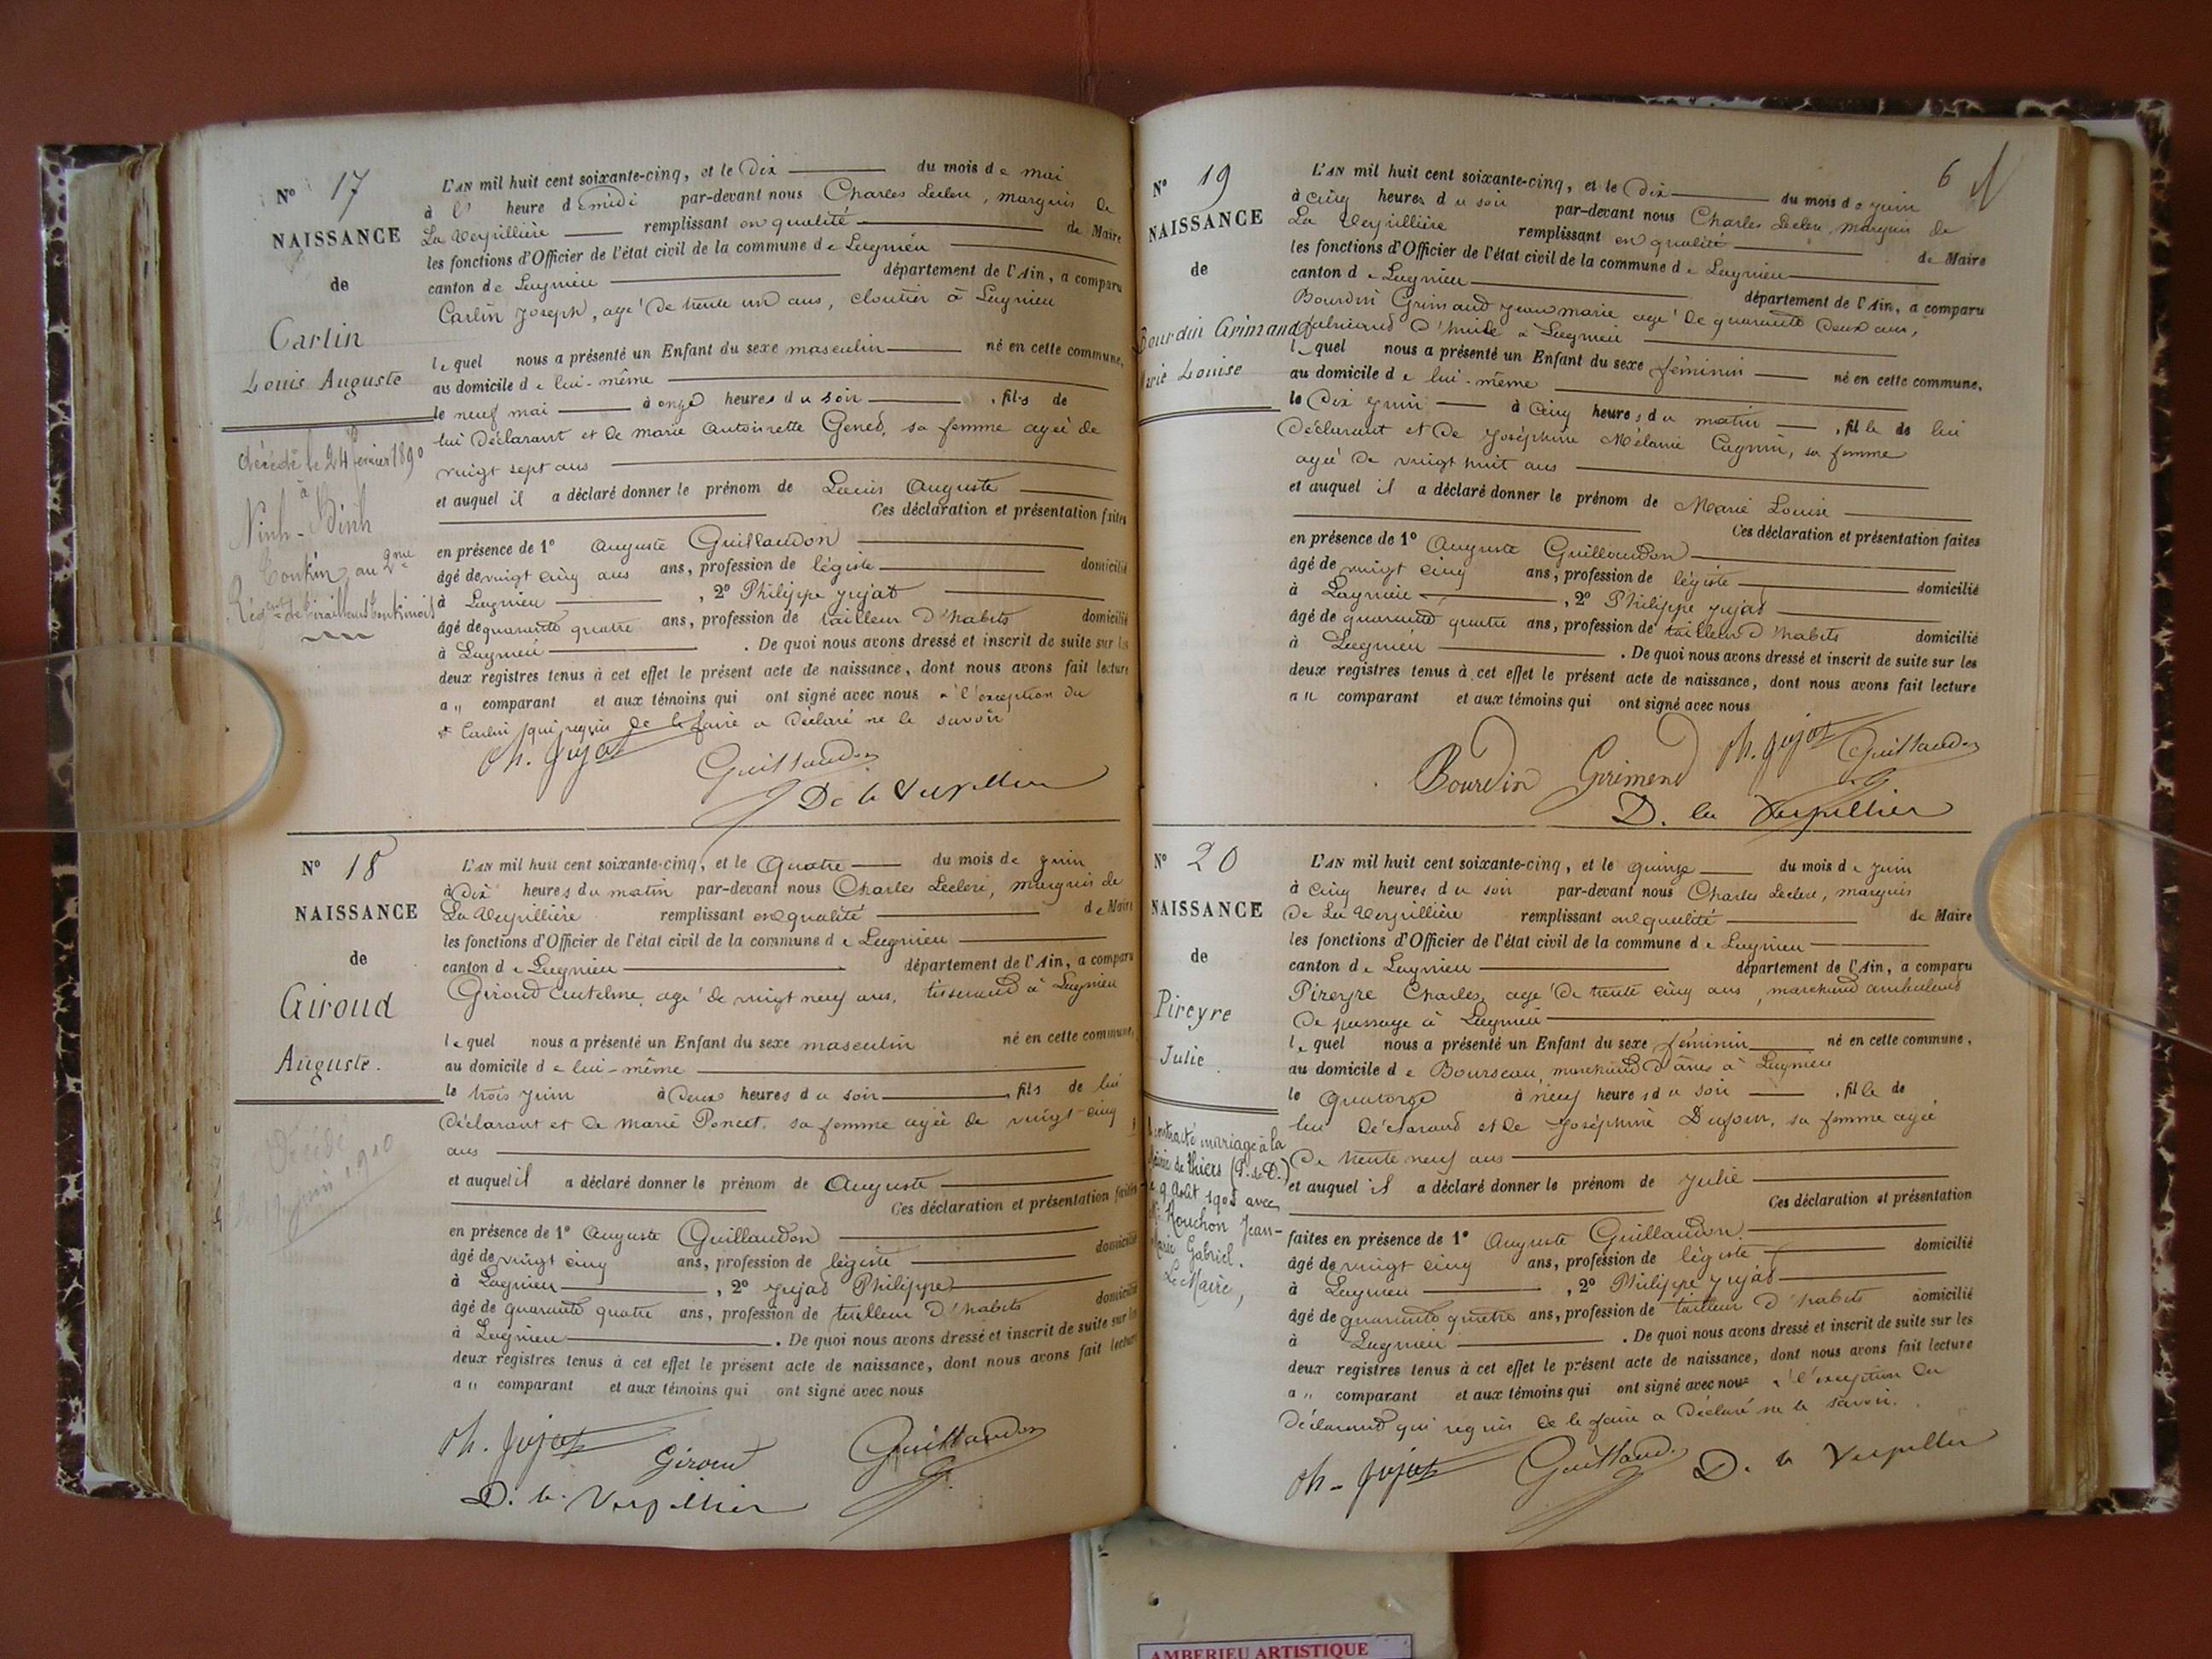 N° 17
NAISSANCE
de
Carlin
Louis Auguste
décédé le 24 février 1890
à
Ninh-Binh
Tonkin, au 2me
Régent de tirailleurs tonkinois
L'AN mil huit cent soixante-cinq, et le Dix du mois de mai
à l' heure de midi par-devant nous Charles Leclerc, marquis de
La Verpillière remplissant en qualité de Maire
les fonctions d'Officier de l'état civil de la commune de Lagnieu
canton de Lagnieu département de l'Ain, a comparu
Carlin Joseph, agé de trente un ans, cloutier à Lagnieu
lequel nous a présenté un Enfant du sexe masculin né en cette commune,
au domicile de lui-même
le neuf mai à onze heures du soir, fils de
lui déclarant et de marie antoinette Gened, sa femme agée de
vingt sept ans
et auquel il a déclaré donner le prénom de Louis Auguste
Ces déclaration et présentation faites
en présence de 1° Auguste Guillaudon
âgé de vingt cinq ans ans, profession de légiste domicilié
à Lagnieu, 2° Philippe Jujat
âgé de quarante quatre ans, profession de tailleur d'habits domicilié
à Lagnieu. De quoi nous avons dressé et inscrit de suite sur les
deux registres tenus à cet effet le présent acte de naissance, dont nous avons fait lecture
au comparant et aux témoins qui ont signé avec nous à l'exception du
Sr Carlin qui requis de le faire a déclaré ne le savoir
Ph. Jujat
Guillaudon
De la Verpillière
N° 18
NAISSANCE
de
Giroud
Auguste.
Décédé
12 juin 1910
L'AN mil huit cent soixante-cinq, et le Quatre du mois de juin
à Dix heures du matin par-devant nous Charles Leclerc, marquis de
La Verpillière remplissant en qualité de Maire
les fonctions d'Officier de l'état civil de la commune de Lagnieu
canton de Lagnieu département de l'Ain, a comparu
Giroud Antelme, agé de vingt neuf ans, tisserand à Lagnieu
lequel nous a présenté un Enfant du sexe masculin né en cette commune,
au domicile de lui-même
le trois juin à deux heures du soir, fils de lui
déclarant et de marie Poncet, sa femme agée de vingt-cinq
ans
et auquel il a déclaré donner le prénom de Auguste
Ces déclaration et présentation faites
en présence de 1° Auguste Guillaudon
âgé de vingt cinq ans, profession de légiste domicilié
à Lagnieu, 2° Jujat Philippe
âgé de quarante quatre ans, profession de tailleur d'habits domicilié
à Lagnieu. De quoi nous avons dressé et inscrit de suite sur les
deux registres tenus à cet effet le présent acte de naissance, dont nous avons fait lecture
au comparant et aux témoins qui ont signé avec nous
Ph. Jujat Giroud Guillaudon
D. la Verpillière
6
N° 19
NAISSANCE
de
Bourdin Grimand
Marie Louise
L'AN mil huit cent soixante-cinq, et le Dix du mois de juin
à cinq heures du soir par-devant nous Charles Leclerc, marquis de
La Verpillière remplissant en qualité de Maire
les fonctions d'Officier de l'état civil de la commune de Lagnieu
canton de Lagnieu département de l'Ain, a comparu
Bourdin Grimaud Jean marie agé de quarante deux ans,
fabricant d'huile à Lagnieu
lequel nous a présenté un Enfant du sexe féminin né en cette commune,
au domicile de lui-même
le Dix juin à cinq heures du matin, fille de lui
déclarant et de Joséphine Mélanie Cagnin, sa femme
agée de vingt huit ans
et auquel il a déclaré donner le prénom de Marie Louise
Ces déclaration et présentation faites
en présence de 1° Auguste Guillaudon
âgé de vingt cinq ans, profession de légiste domicilié
à Lagnieu, 2° Philippe Jujat
âgé de quarante quatre ans, profession de tailleur d'habits domicilié
à Lagnieu. De quoi nous avons dressé et inscrit de suite sur les
deux registres tenus à cet effet le présent acte de naissance, dont nous avons fait lecture
au comparant et aux témoins qui ont signé avec nous
Bourdin Grimend Ph. Jujat Guillaudon
D. la Verpillière
N° 20
NAISSANCE
de
Pireyre
Julie
A contracté mariage à la
Mairie de Thiers (P.-de-D.)
le 9 Août 1905 avec
Mr Rouchon Jean-
Marie Gabriel.
Le Maire,
L'AN mil huit cent soixante-cinq, et le quinze du mois de juin
à cinq heures du soir par-devant nous Charles Leclerc, marquis
de La Verpillière remplissant en qualité de Maire
les fonctions d'Officier de l'état civil de la commune de Lagnieu
canton de Lagnieu département de l'Ain, a comparu
Pireyre Charles, agé de trente cinq ans, marchand ambulant
de passage à Lagnieu
lequel nous a présenté un Enfant du sexe féminin né en cette commune,
au domicile de Bourseau, marchand d'ânes à Lagnieu
le Quatorze à neuf heures du soir, fille de
lui déclarant et de Joséphine Dufour, sa femme agée
de trente neuf ans
et auquel il a déclaré donner le prénom de Julie
Ces déclaration et présentation
faites en présence de 1° Auguste Guillaudon
âgé de vingt cinq ans, profession de légiste domicilié
à Lagnieu, 2° Philippe Jujat
âgé de quarante quatre ans, profession de tailleur d'habits domicilié
à Lagnieu. De quoi nous avons dressé et inscrit de suite sur les
deux registres tenus à cet effet le présent acte de naissance, dont nous avons fait lecture
au comparant et aux témoins qui ont signé avec nous à l'exception du
déclarant qui requis de le faire a déclaré ne le savoir.
Ph. Jujat Guillaud. D. la Verpillière
AMBERIEU ARTISTIQUE